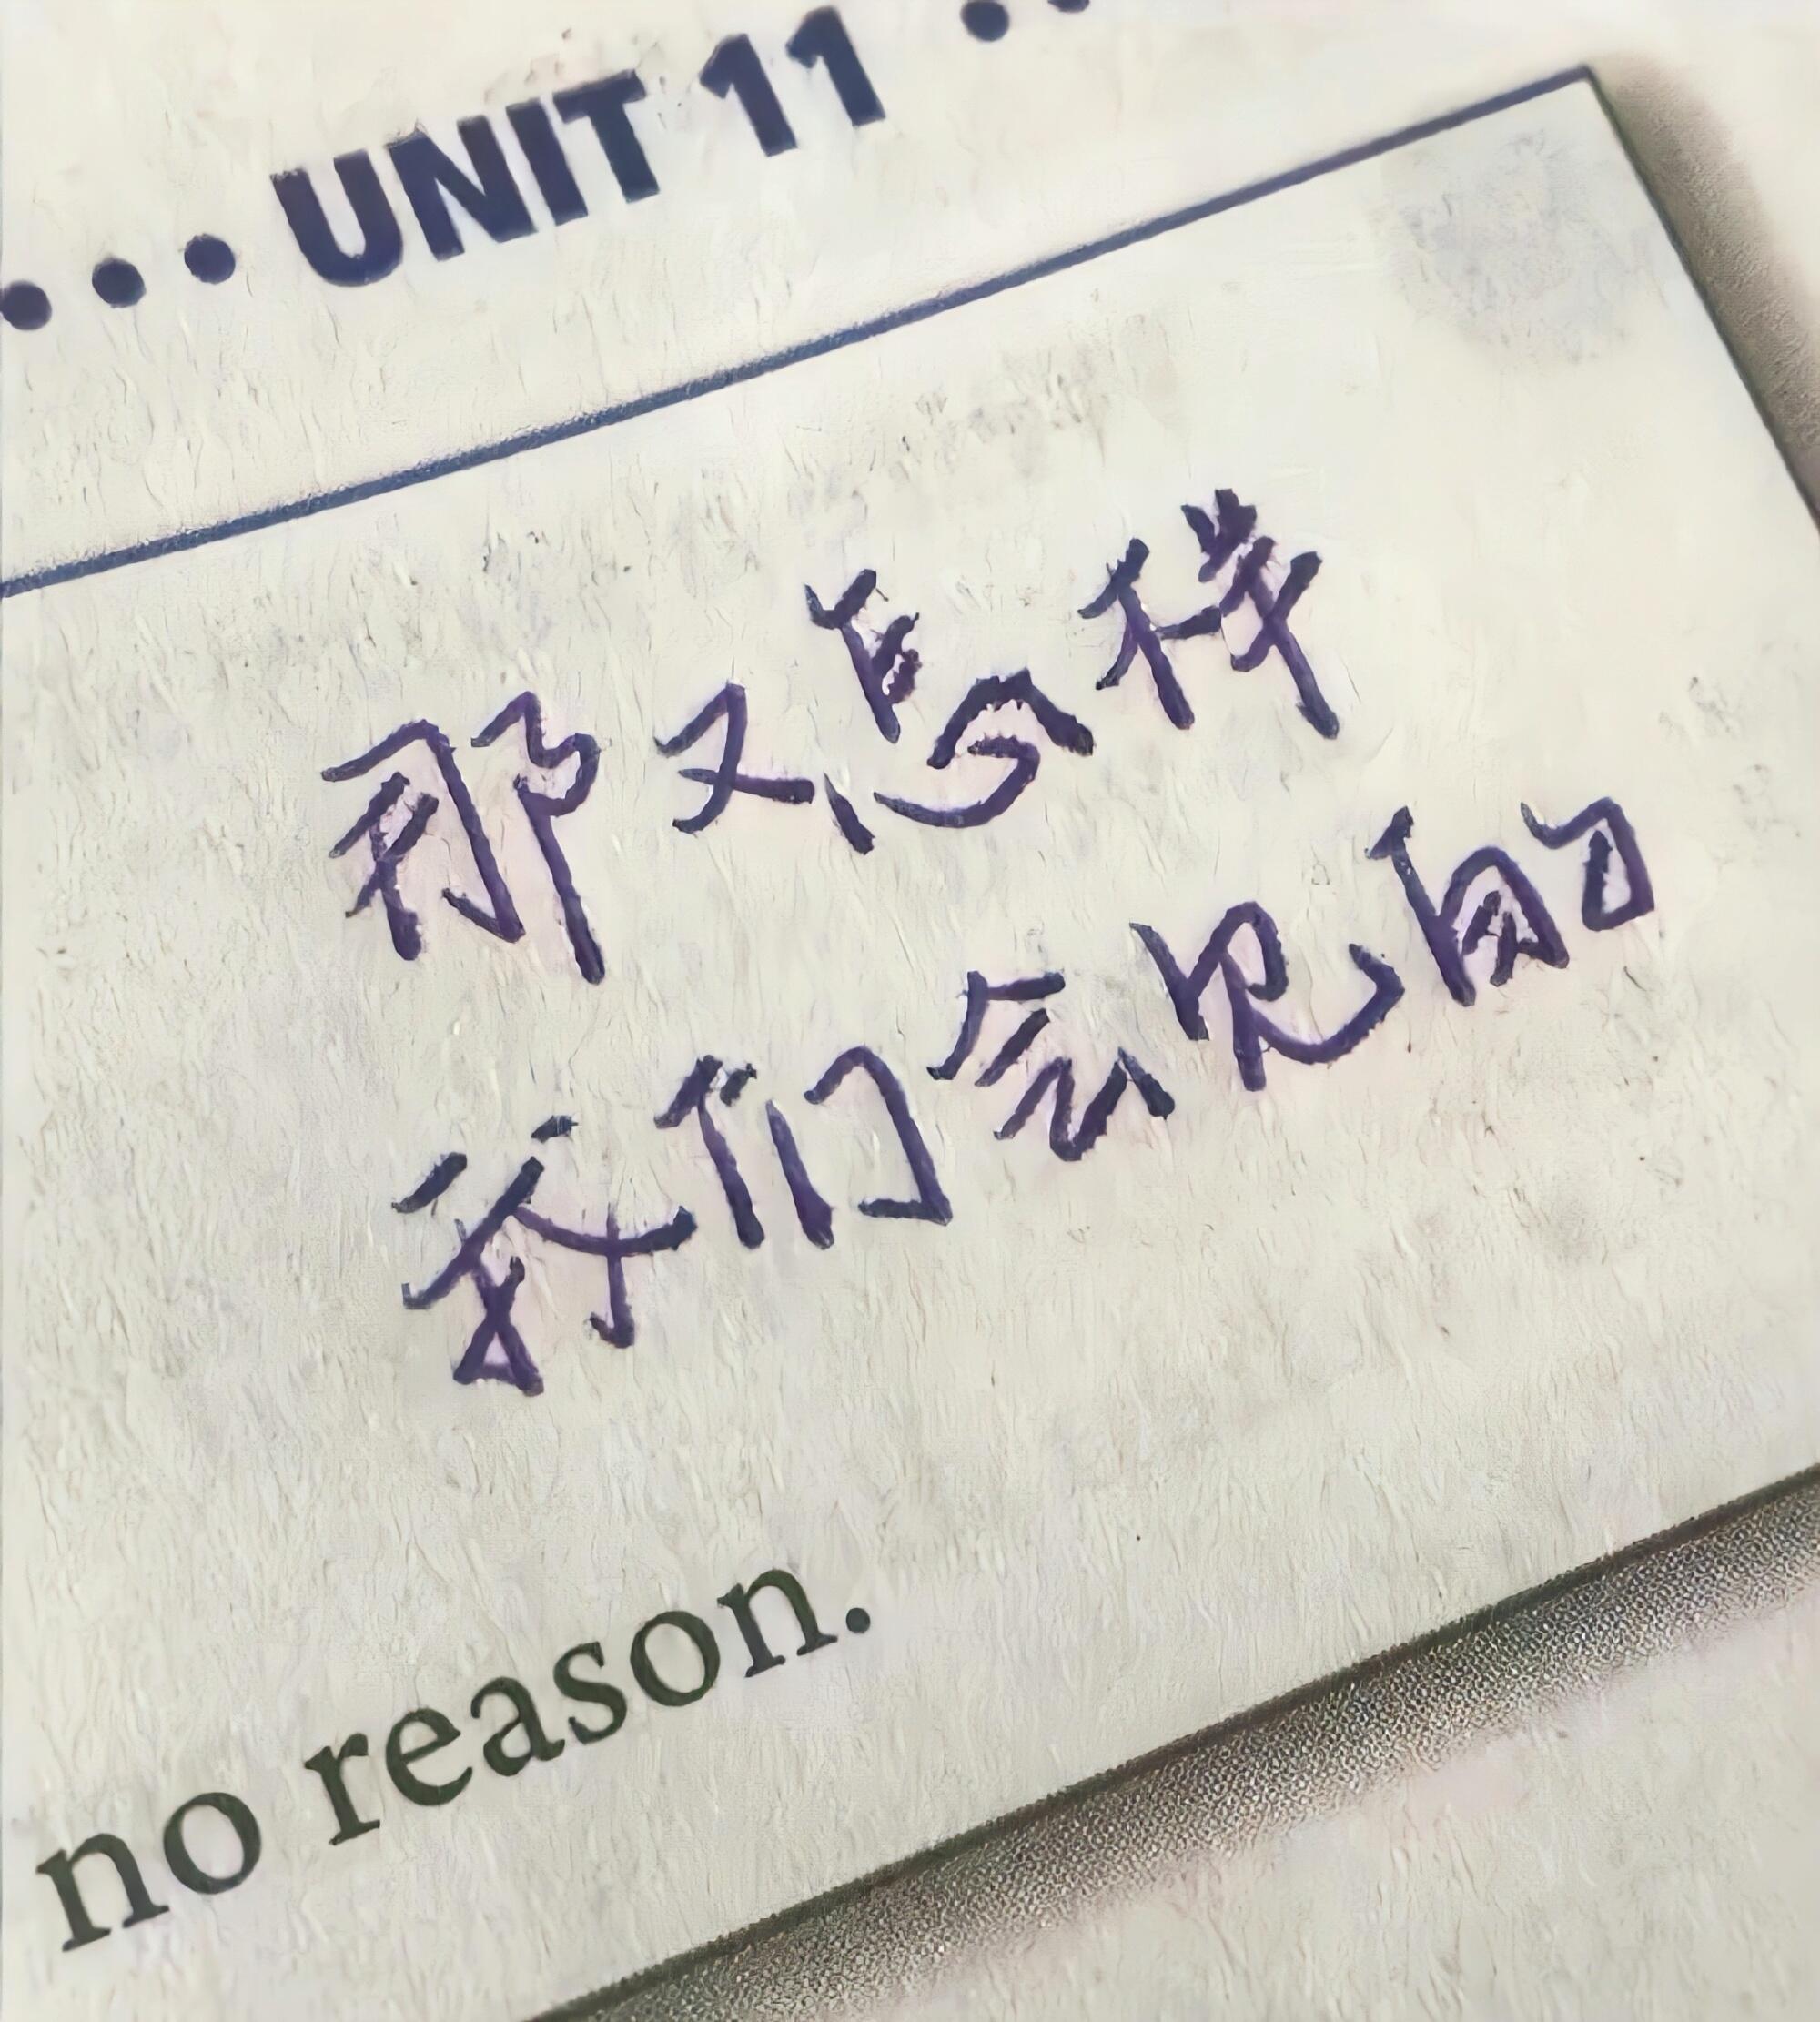 ••• UNIT 11 ••
那又怎样
我们会见的
no reason.